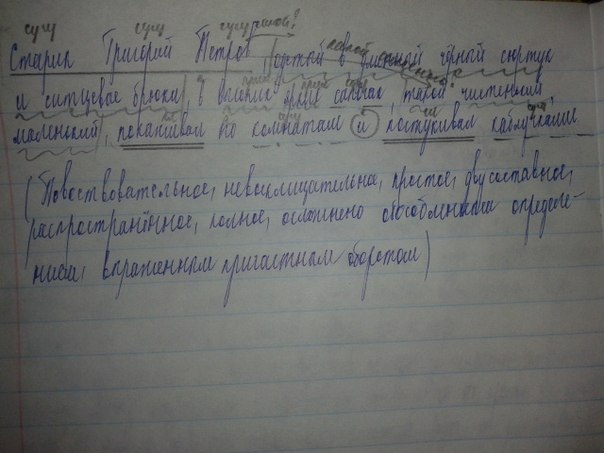 сущ сущ сущ какой?
Старик Григорий Петров, одетый в длинный чёрный сюртук
и ситцевые брюки, в высоких ярких сапогах, такой чистенький
маленький, покашливал по комнатам и постукивал каблучками
(Повествовательное, невосклицательное, простое, двусоставное,
распространённое, полное, осложнено обособленным определе-
нием, выраженным причастным оборотом)